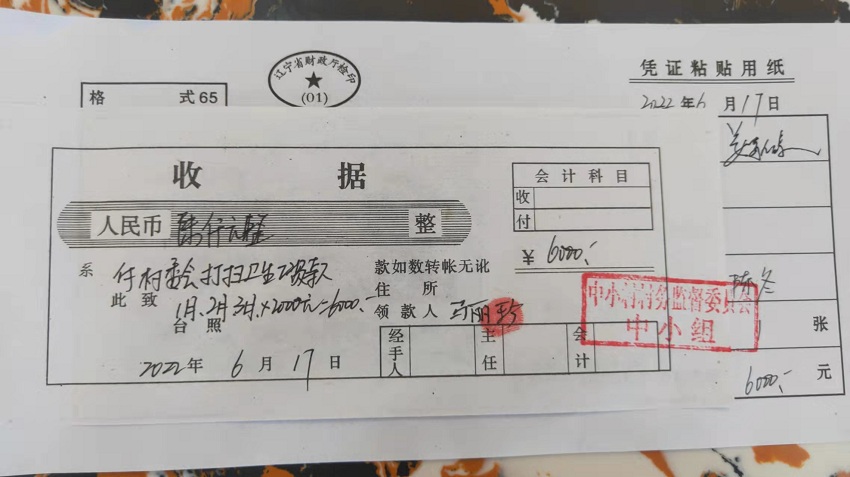 辽宁省财政厅检印
(01)
凭证粘贴用纸
格 式65
2022年6月17日
收 据
会计科目
收
付
人民币 陆仟元整 整
¥ 6000.-
系 付村委会打扫卫生 款
款如数转帐无讹
此致 1月、2月、3月×2000元=6000.-
住 所
台照
领款人 马丽
中小村村务监督委员会
中小组
经手人
主任
会计
2022年6月17日
张
6000.- 元